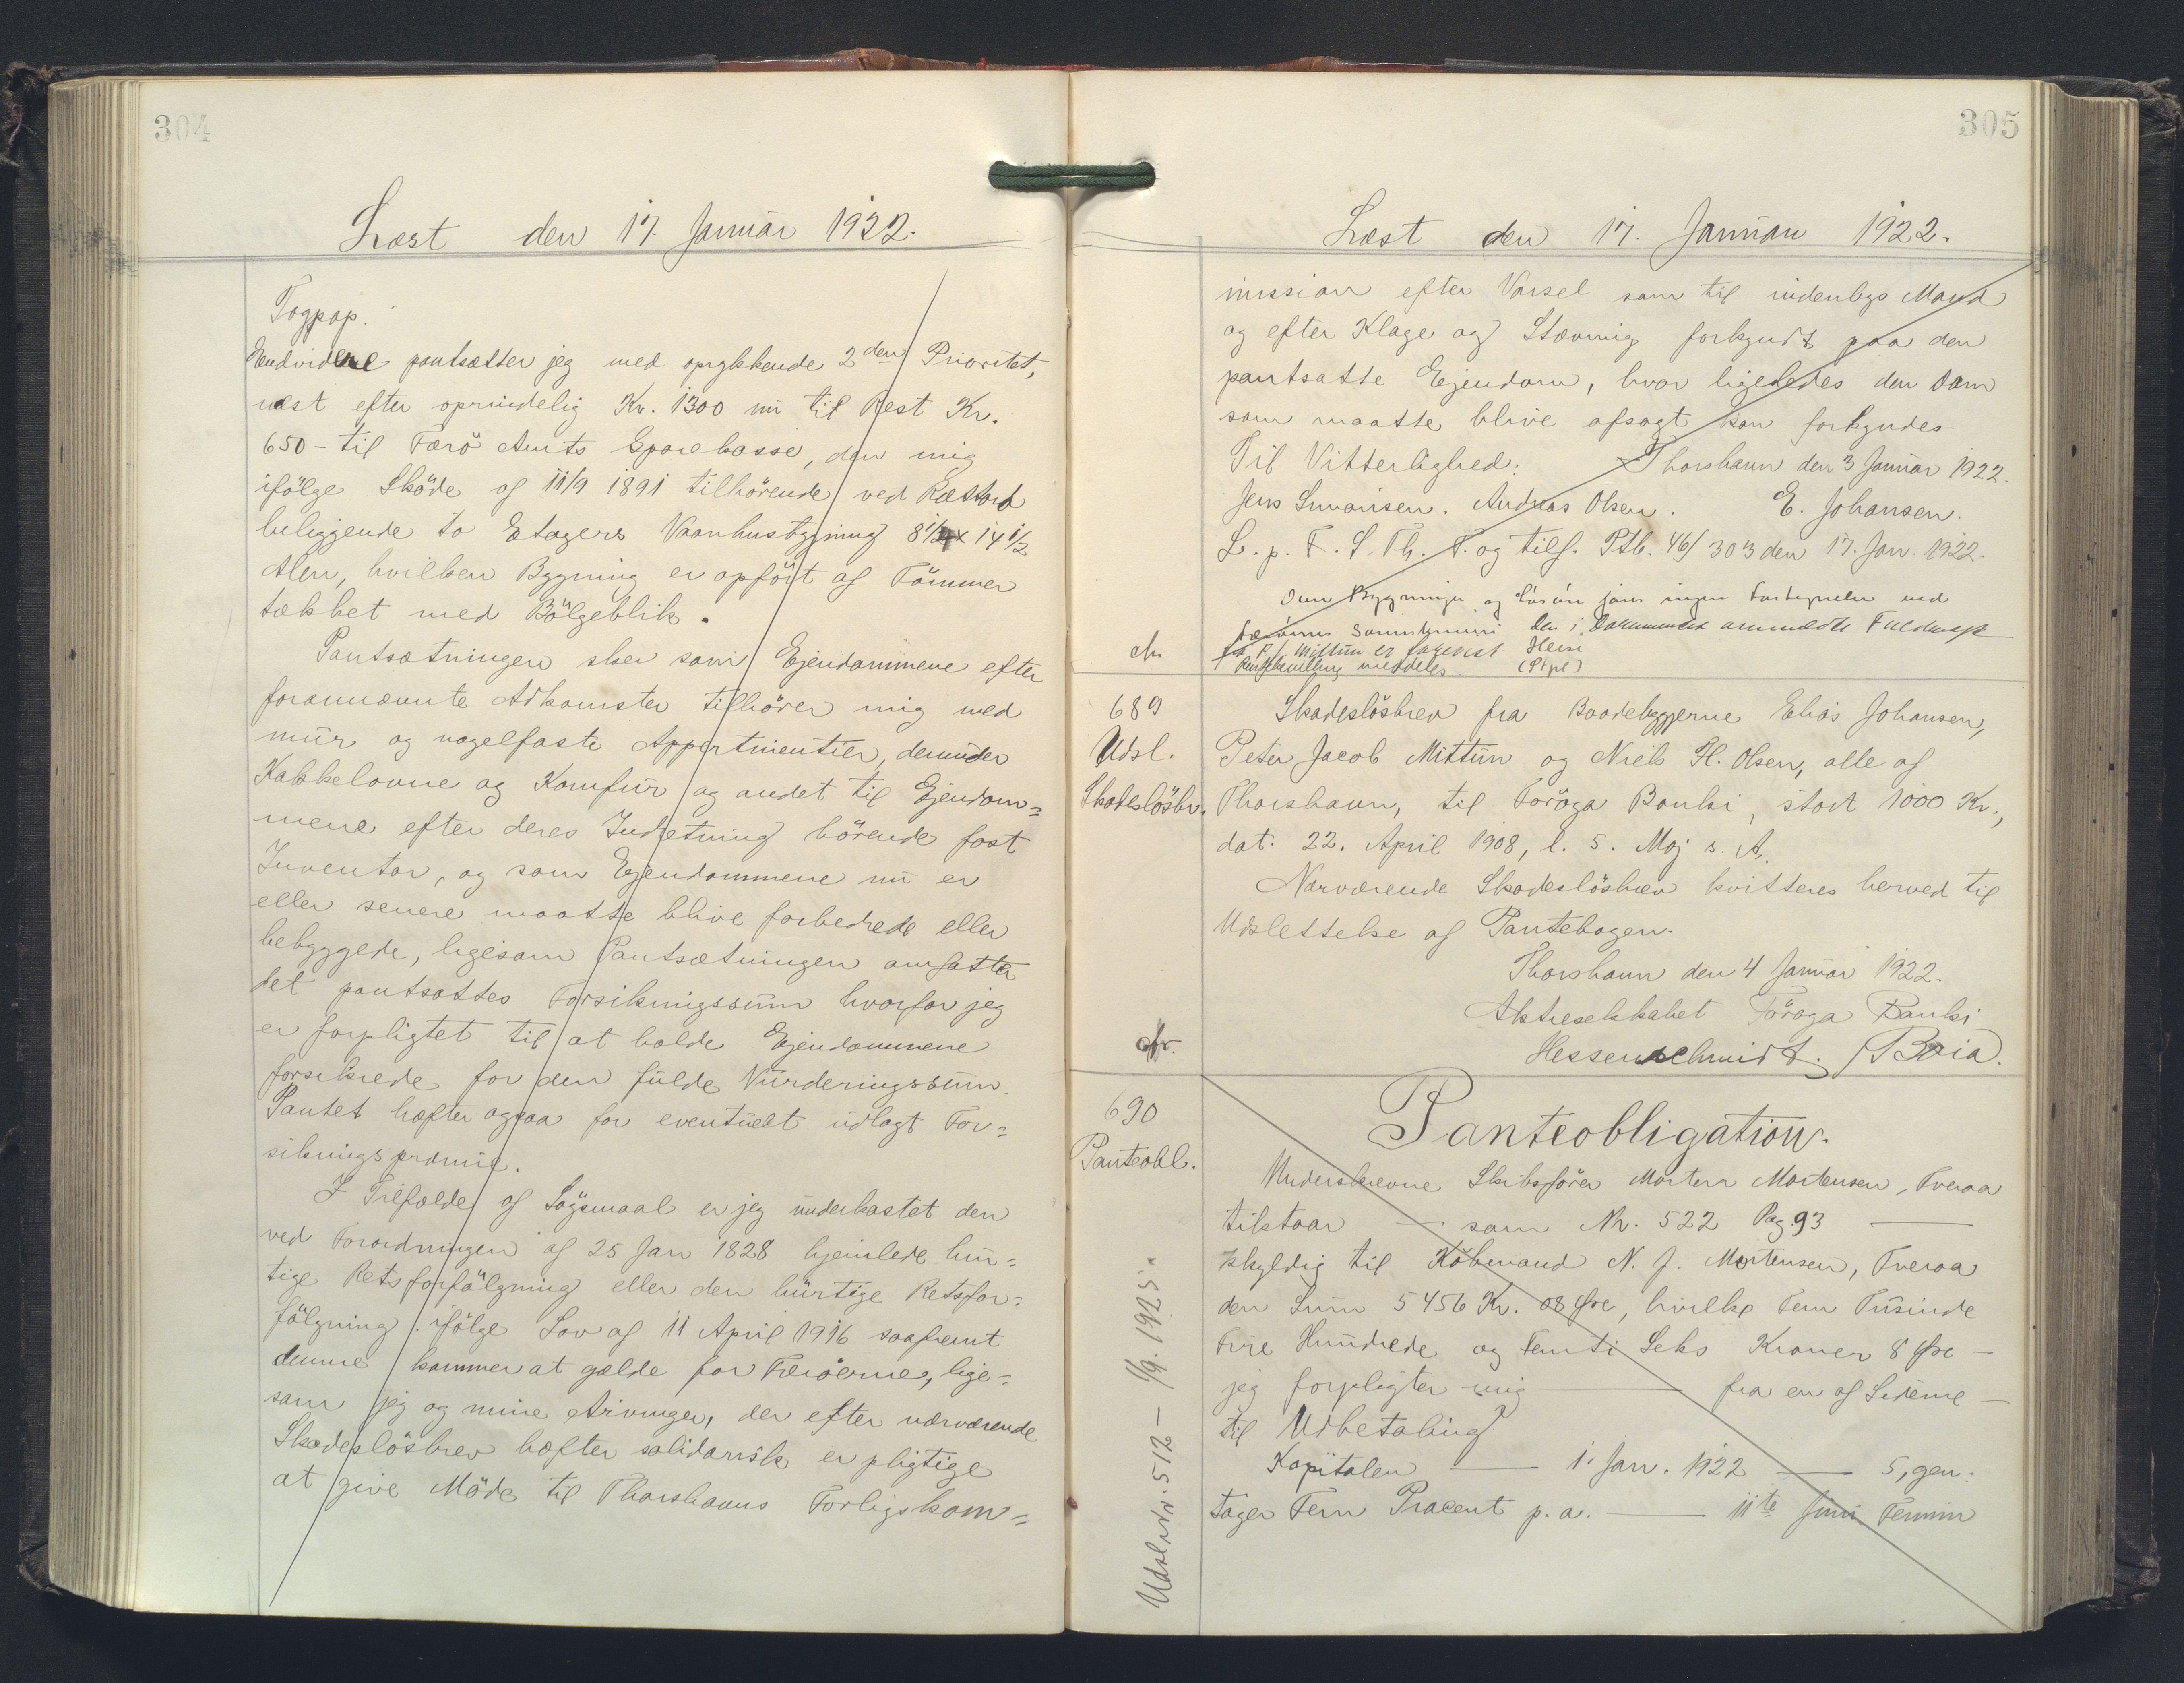 304
Læst den 17. Januar 1922.
Tagpap.
Endvidere pantsætter jeg med oprykkende 2den Prioritet,
næst efter oprindelig Kr. 1300 nu til Rest Kr.
650 - til Færø Amts Sparekasse, den mig
ifölge Sköde af 11/9 1891 tilhörende ved Rættará
beliggende to Etagers Vaanhusbygning 8 1/2 x 14 1/2
Alen, hvilken Bygning er opfört af Tömmer
tækket med Bölgeblik.
Pantsætningen sker som Ejendommene efter
forannævnte Adkomster tilhörer mig med
mur og nagelfaste Appertinentier, derunder
Kakkelovne og Komfur og andet til Ejendom=
mene efter deres Indretning hörende fast
Inventar, og som Ejendommene nu er
eller senere maatte blive forbedrede eller
bebyggede, ligesom Pantsætningen omfatter
det pantsattes Forsikringssum hvorfor jeg
er forpligtet til at holde Ejendommene
forsikrede for den fulde Vurderingssum.
Pantet hæfter ogsaa for eventuelt udlagt For=
sikringspræmie.
I Tilfælde af Sögsmaal er jeg underkastet den
ved Forordningen af 25 Jan 1828 hjemlede hur=
tige Retsforfölgning eller den hurtige Retsfor=
fölgning ifölge Lov af 11 April 1916 saafremt
denne kommer at gælde for Færöerne, lige=
som jeg og mine Arvinger, der efter nærværende
Skadeslösbrev hæfter solidarisk er pligtige
at give Möde til Thorshavns Forligskom=
305
Læst den 17. Januar 1922.
mission efter Varsel som til indenbys Mand
og efter Klage og Stævning forkyndt paa den
pantsatte Ejendom, hvor ligeledes den Dom
som maatte blive afsagt kan forkyndes
Til Vitterlighed: Thorshavn den 3 Januar 1922.
Jens Simonsen. Andreas Olsen. E. Johansen.
L. p. F. S. Th. T. og tilf. Ptb. 46/303 den 17. Jan. 1922.
Om Bygninger og Lösöre föres ingen Fortegnelse ved
Færöernes Sorenskriveri Den i Dokumentet ommeldte Fuldmagt
fra P. J. Mittún er forevist Heise
(Stpl)
689
Udsl.
Skadeslösbr.
Skadeslösbrev fra Baadebyggerne Elias Johansen,
Peter Jacob Mittún og Niels H. Olsen, alle af
Thorshavn, til Föroya Banki, stort 1000 Kr.,
dat. 22. April 1908, l. 5. Maj s. A.
Nærværende Skadeslösbrev kvitteres herved til
Udslettelse af Pantebogen.
Thorshavn den 4 Januar 1922.
Aktieselskabet Föroya Banki
Hessenschmidt. / Baia.
690
Panteobl.
Udsl. Nr. 512 - 1/9. 1925.
Panteobligation.
Underskrevne Skibsförer Morten Mortensen, Tveraa
tilstaar — som Nr. 522 Pag. 93 —
skyldig til Köbmand N. J. Mortensen, Tveraa
den Sum 5456 Kr. 08 Øre, hvilke Fem Tusinde
Fire Hundrede og Femti Seks Kroner 8 Øre —
jeg forpligter mig — fra en af Siderne —
til Udbetaling
Kapitalen — 1. Jan. 1922 — 5, gen-
tager Fem Procent p. a. — 11te Juni Termin